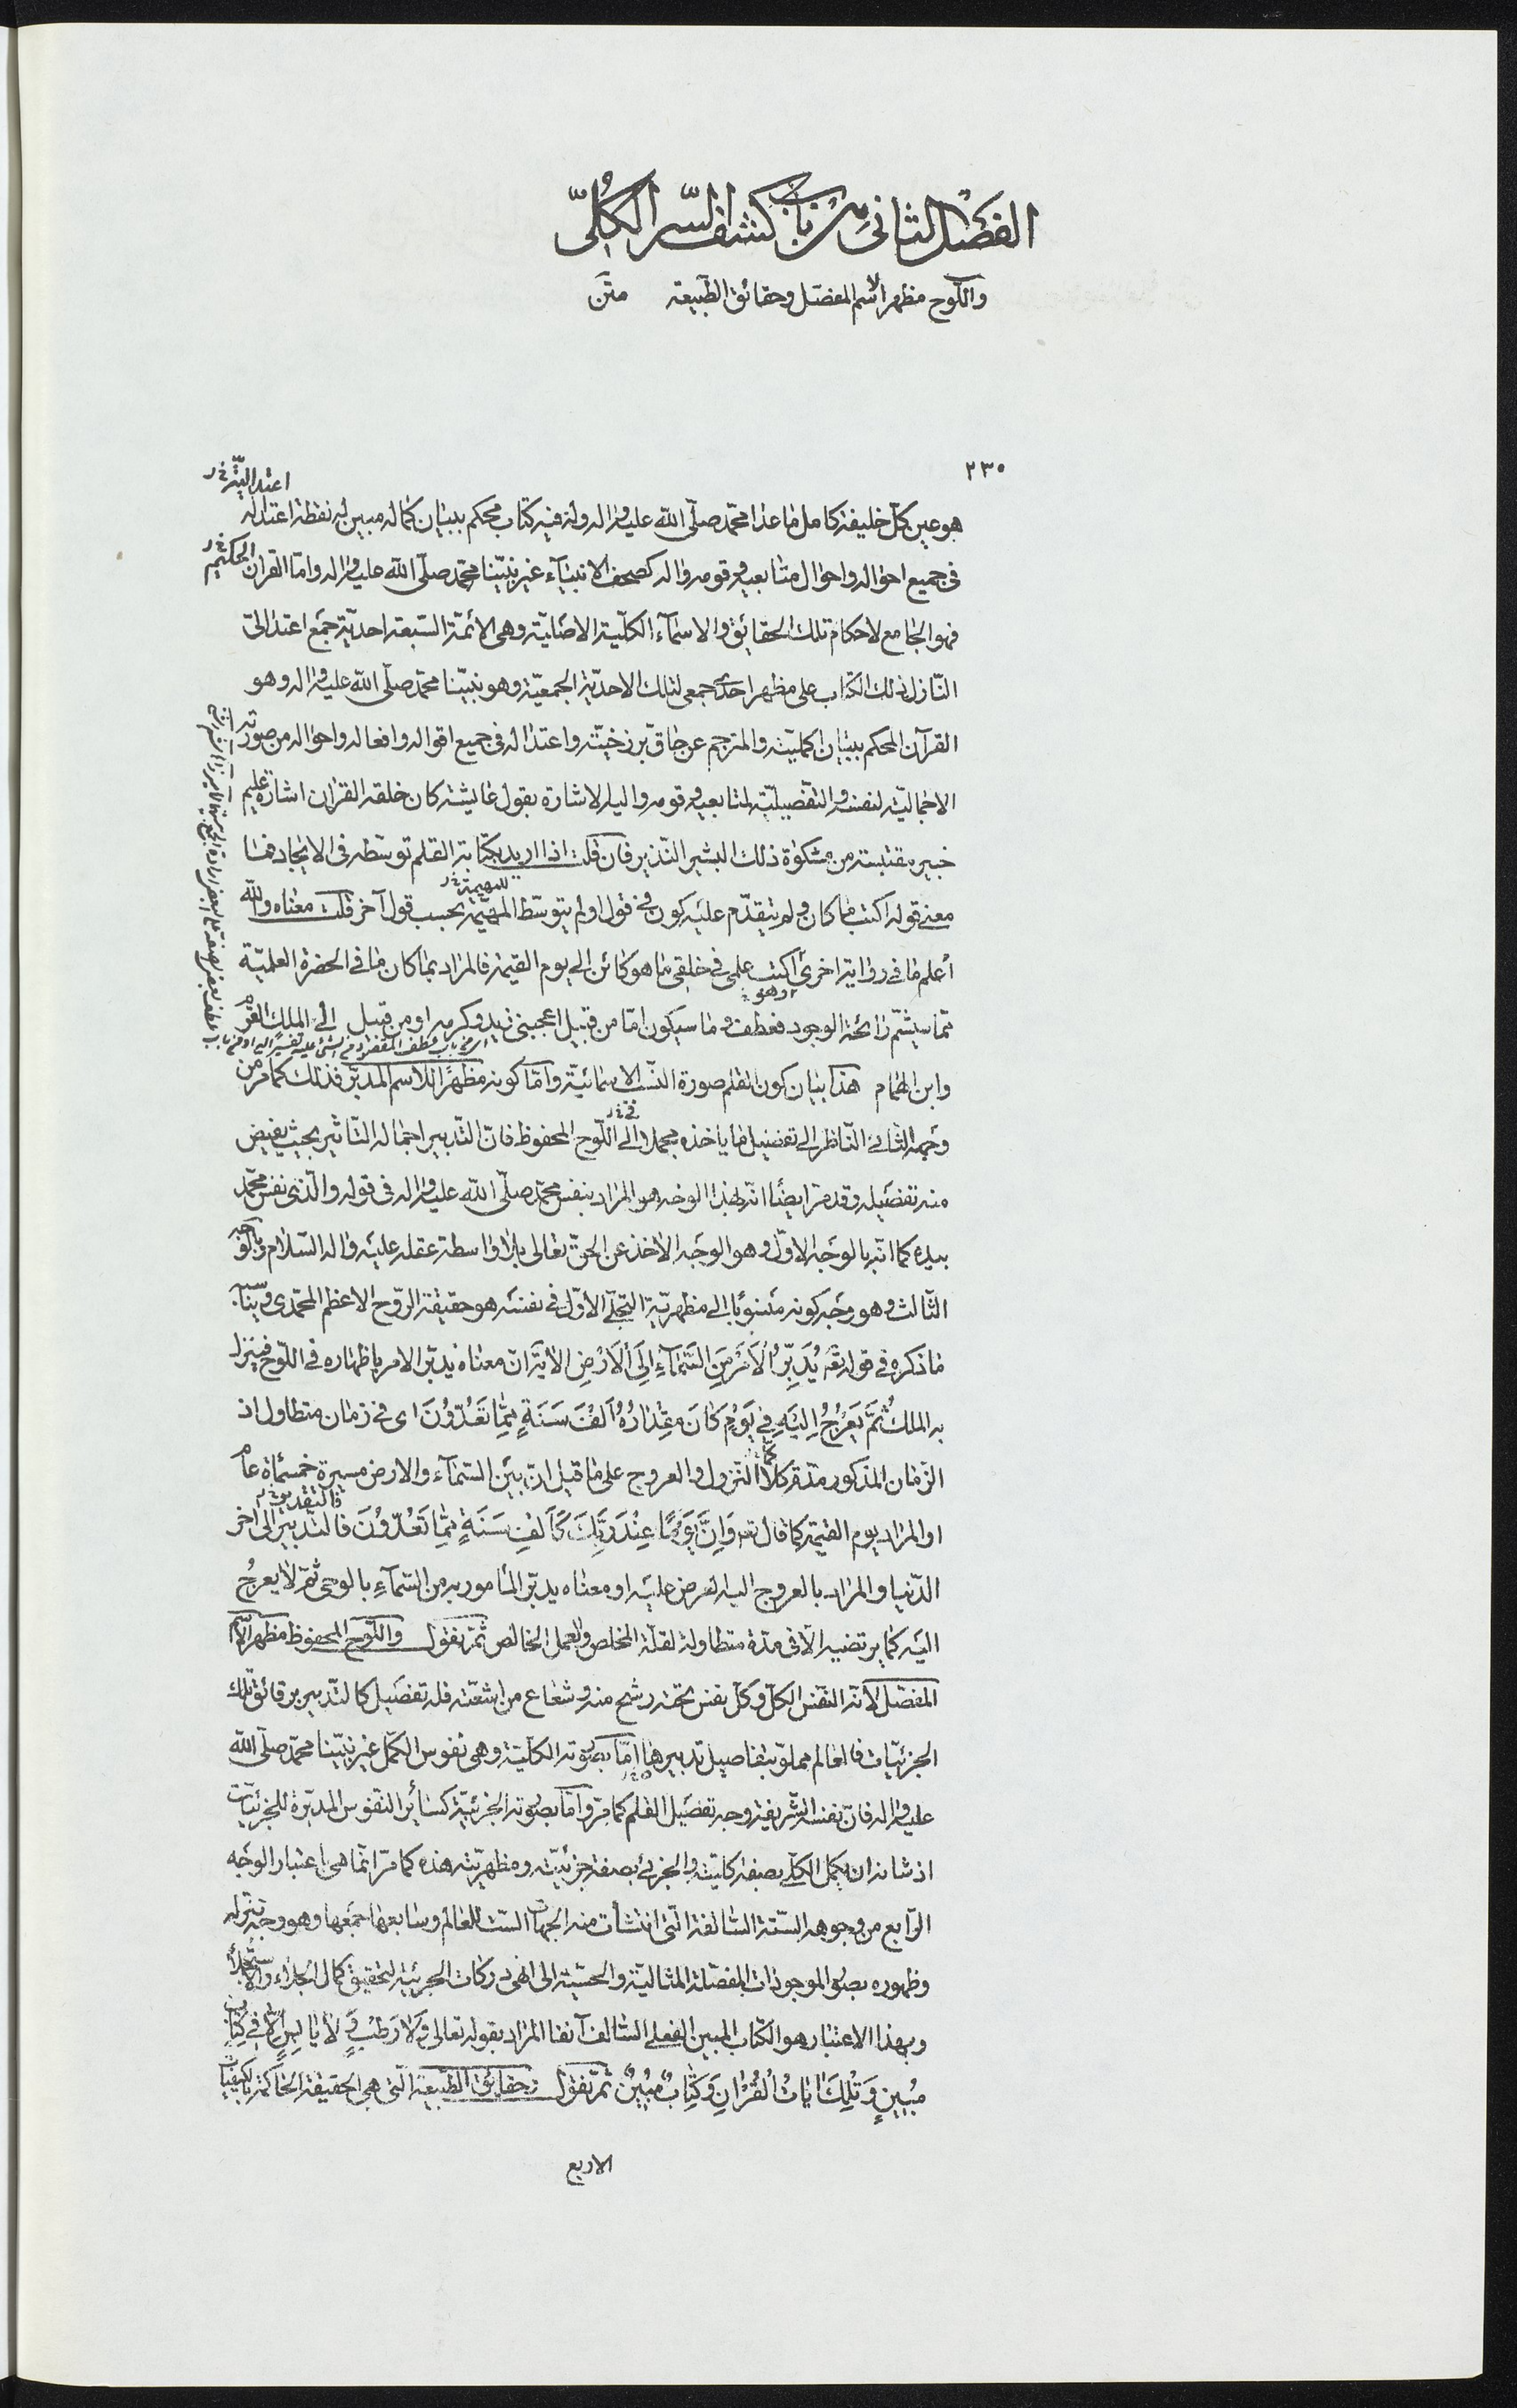 الفصل الثانى من باب كشف السّر الكلّىّ
واللّوح مظهر الاسم المفصّل وحقائق الطّبيعة متن
٢٣٠
اعتداليّته خ ر
هو عين كلّ خليفة كامل ما عدا محمّد صلّى اللّه عليه واله وله فيه كتاب محكم ببيان كماله مبين له نقطة اعتداله
فى جميع احواله واحوال متابعيه وقومه واله كصحف الانبيآء غير نبيّنا محمّد صلّى اللّه عليه واله وامّا القران الحكيم خ ر
فهو الجامع لاحكام تلك الحقائق والاسمآء الكلّية الاصليّة وهى الائمّة السّبعة احديّة جمع اعتدالىّ
النّازل ذلك الكتاب على مظهر احدىّ جمعى لتلك الاحديّة الجمعيّة وهو نبيّنا محمّد صلّى اللّه عليه واله وهو
القرآن المحكم ببيان اكمليّته والمترجم عن حاقّ برزخيّته واعتداله فى جميع اقواله وافعاله واحواله من صورته
الاجماليّة لنفسه والتّفصيليّة لمتابعيه وقومه واليه الاشارة بقول عايشة كان خلقه القران اشارة عليم
خبير مقتبسة من مشكوة ذلك البشير النّذير فان قلت اذا اريد بكتابة القلم توسّطه فى الايجاد فما
معنى قوله اكتب ما كان ولم يتقدّم عليه كون فى قول اولم يتوسّط المهيّمة بحسب قول آخر قلت معناه واللّه
للمهيمة خ ر
أعلم ما فى رواية اخرى اكتب علمى فى خلقى ما هو كائن الى يوم القيمة فالمراد بما كان ما فى الحضرة العلميّة
ممّا سيشمّ رائحة الوجود فعطف وما سيكون امّا من قبيل اعجبنى زيد وكرمه او من قبيل الى الملك القرم
او هو
وابن الهمام هذا بيان كون القلم صورة النّسب الاسمائيّة وامّا كونه مظهرًا للاسم المدبّر فذلك كما مرّ من
وجهه الثّانى النّاظر الى تفصيل ما ياخذه مجملا الى اللّوح المحفوظ فانّ التّدبير اجماله التّاثير بحيث يفيض
فى خ ر
منه تفصيله وقد مرّ ايضًا انّه بهذا الوجه هو المراد بنفس محمّد صلّى اللّه عليه واله فى قوله والّذى نفس محمّد
بيده كما انّه بالوجه الاوّل وهو الوجه الاخذ عن الحقّ تعالى بلا واسطة عقله عليه واله السّلام وبالوجه
الثّالث وهو وجه كونه منسوبا الى مظهريّة التجلّى الاوّل فى نفسه هو حقيقة الرّوح الاعظم المحمّدى وسيّنا.
ما ذكره فى قوله تع يُدَبِّرُ الْاَمْرَ مِنَ السَّمَآءِ اِلَى الْاَرْضِ الاية انّ معناه يدبّر الامر باظهاره فى اللّوح فينزل
به الملك ثُمَّ يَعْرُجُ اِلَيْهِ فِى يَوْمٍ كَانَ مِقْدَارُهُ اَلْفَ سَنَةٍ مِمَّا تَعُدُّونَ اى فى زمان متطاول اذ
الزّمان المذكور مدّة كلا النّزول والعروج على ما قيل انّ بين السّمآء والارض مسيرة خمسمأة عام
او المراد يوم القيمة كما قال تع وَاِنَّ يَوْمًا عِنْدَ رَبِّكَ كَاَلْفِ سَنَةٍ مِمَّا تَعُدُّونَ فالتّدبير الى اخر
فالتقدير خ ر
الدّنيا والمراد بالعروج اليه العرض عليه او معناه يدبّر المأمور به من السّمآءِ بالوحى ثمّ لا يعرجُ
اليه كما يرتضيه الّا فى مدّة متطاولة لقلّة المخلص والعمل الخالص ثمّ نقول واللّوح المحفوظ مظهر الاسم
المفصّل لانّه النّفس الكلّ وكلّ نفس تحته رشح منه وشعاع من اشعّته فله تفصيل كالتّدبير برقائق تلك
الجزئيّات فالعالم مملوّ بتفاصيل تدبيرها امّا بصورته الكلّية وهى نفوس الكمّل غير نبيّنا محمّد صلّى اللّه
عليه واله فانّ نفسه الشّريفة وجه تفصيل القلم كما مرّ وامّا بصورته الجزئيّة كسائر النّفوس المدبّرة للجزئيّات
اذ شانه ان يكمل الكلّى بصفة كليّته والجزئى بصفة جزئيّته ومظهريّته هذه كما مرّ انّما هى اعتبار الوجه
الرّابع من وجوهه السّتة السّالفة الّتى انتشأت منه الجهات السّت للعالم وسابعها جمعها وهو وجه تنزله
وظهوره بصور الموجودات المفصّلة المثاليّة والحسّية الى انهى دركات الجزئية لتحقيق كمال الجلاء والاستجلآء
وبهذا الاعتبار هو الكتاب المبين الفعلى السّالف آنفا المراد بقوله تعالى وَلَا رَطْبٍ وَلَا يَابِسٍ اِلَّا فِى كِتَابٍ
مُبِينٍ وَتِلْكَ ايَاتُ الْقُرْانِ وَكِتَابٌ مُبِينٌ ثمّ نقول وحقائق الطّبيعة الّتى هى الحقيقة الحاكمة بالكيفيّات
الاربع